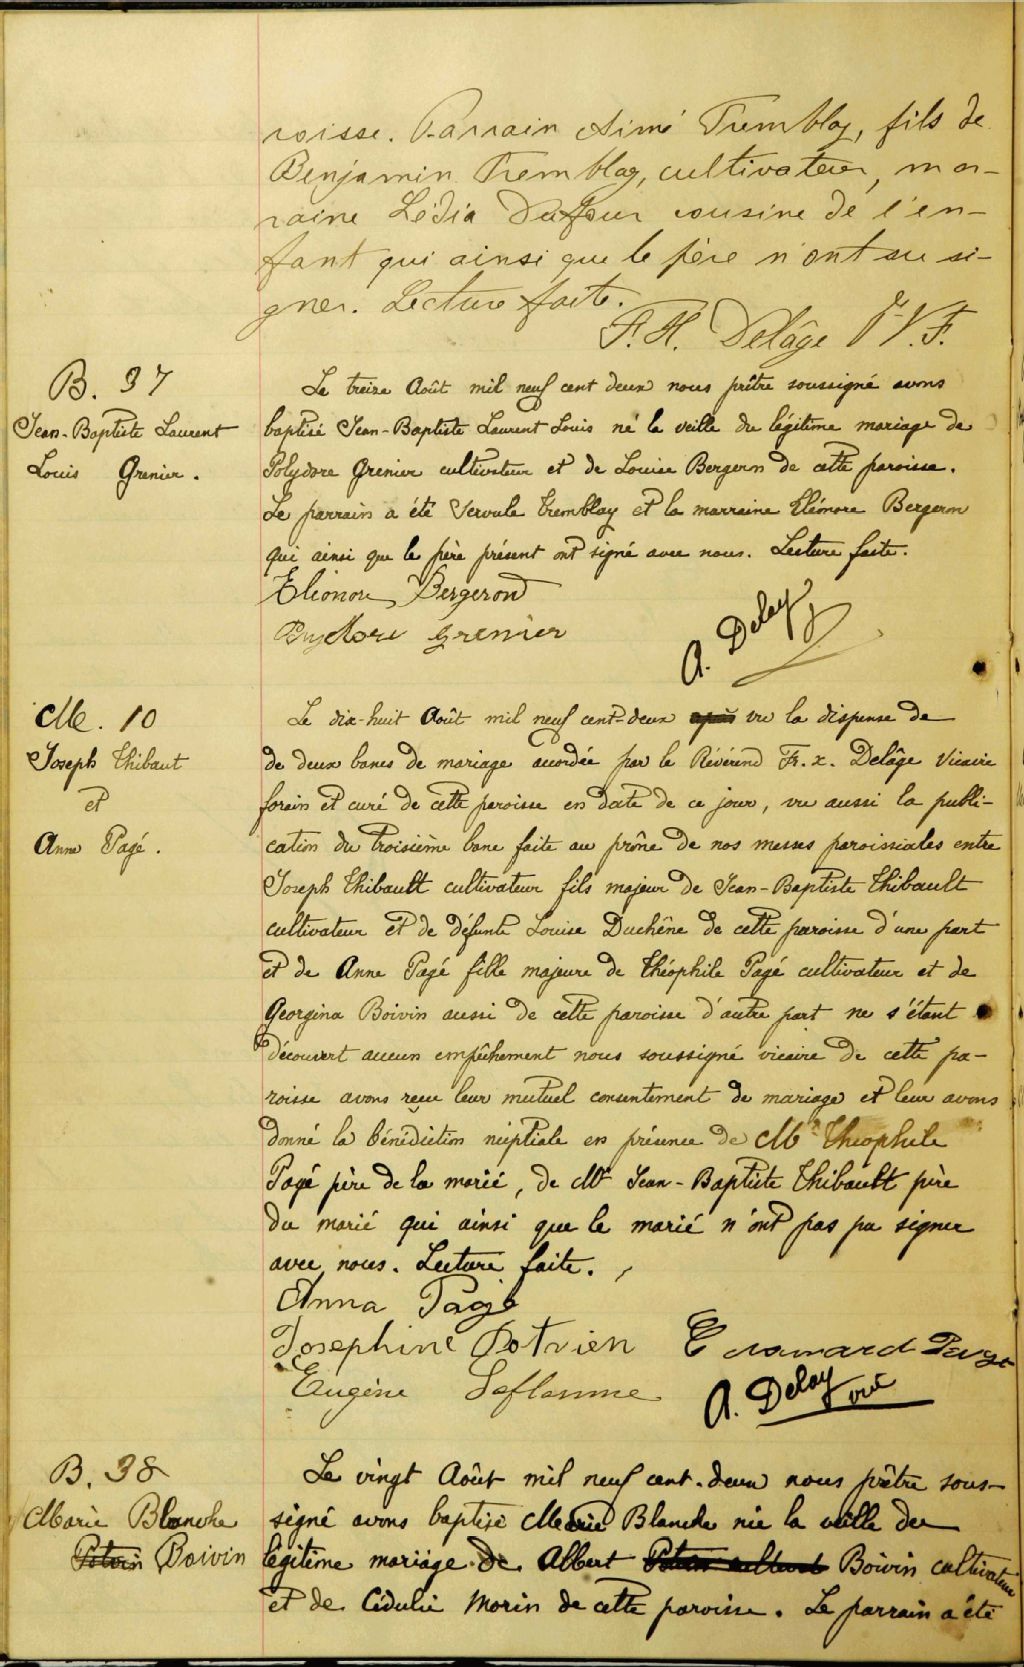 roisse. Parrain Aimé Tremblay, fils de
Benjamin Tremblay, cultivateur, mar-
raine Lédia Dufour cousine de l'en-
fant qui ainsi que le père n'ont su si-
gner. Lecture faite.
F. X. Delâge Ptre V. F.
B. 37
Jean-Baptiste Laurent
Louis Grenier.
Le treize Août mil neuf cent deux nous prêtre soussigné avons
baptisé Jean-Baptiste Laurent Louis né la veille du légitime mariage de
Polydore Grenier cultivateur et de Louise Bergeron de cette paroisse.
Le parrain a été Tremblay et la marraine Eléonore Bergeron
qui ainsi que le père présent ont signé avec nous. Lecture faite.
Eléonore Bergeron
Grenier
A. Delay
M. 10
Joseph Thibaut
et
Anna Pagé.
Le dix-huit Août mil neuf cent-deux après vu la dispense de
de deux bancs de mariage accordée par le Révérend Fr. X. Delâge Vicaire
forain et curé de cette paroisse en date de ce jour, vu aussi la publi-
cation du troisième banc faite au prône de nos messes paroissiales entre
Joseph Thibault cultivateur fils majeur de Jean-Baptiste Thibault
cultivateur et de défunte Louise Duchêne de cette paroisse d'une part
et de Anna Pagé fille majeure de Théophile Pagé cultivateur et de
Georgina Boivin aussi de cette paroisse d'autre part ne s'étant
découvert aucun empêchement nous soussigné vicaire de cette pa-
roisse avons reçu leur mutuel consentement de mariage et leur avons
donné la bénédiction nuptiale en présence de Mr Théophile
Pagé père de la marié, de Mr Jean-Baptiste Thibault père
du marié qui ainsi que le marié n'ont pas pu signer
avec nous. Lecture faite.
Anna Pagé
Josephine Potvien Edouard Pagé
Eugène Laflamme A. Delay vic
B. 38
Marie Blanche
Potvin Boivin
Le vingt Août mil neuf cent-deux nous prêtre sous-
signé avons baptisé Marie Blanche née la veille du
légitime mariage de Albert Potvin cultivat Boivin cultivateur
et de Cédulie Morin de cette paroisse. Le parrain a été